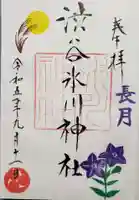 奉拝
長月
渋谷氷川神社
令和五年九月十一日